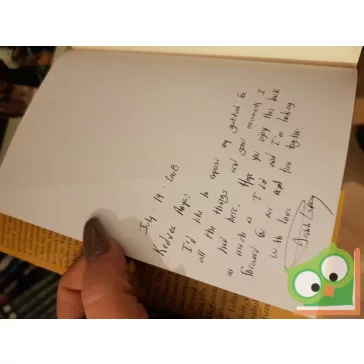 July 19. 2008
Kedves Anya!
I'd like to express my gratitude to
all the things and good moments I
had here. Hope you enjoy this book
as much as I did and I'm looking
forward for our next time together.
with love